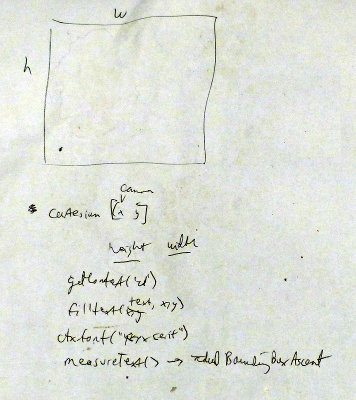 w
h
canvas
cartesian [x y]
height width
getContext('2d')
filltext(text, x, y)
ctx.font("
measureText() → BoundingBoxAscent